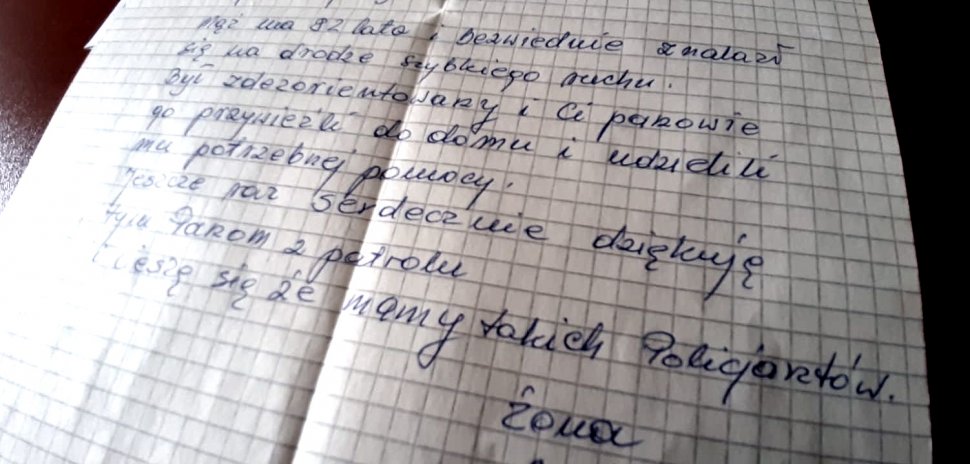 mąż ma 82 lata i Bezwiednie znalazł
się na drodze szybkiego ruchu.
Był zdezorientowany i Ci panowie
go przywieźli do domu i udzielili
mu potrzebnej pomocy.
Jeszcze raz serdecznie dziękuję
tym Panom z patrolu
Cieszę się że mamy takich Policjantów.
Żona